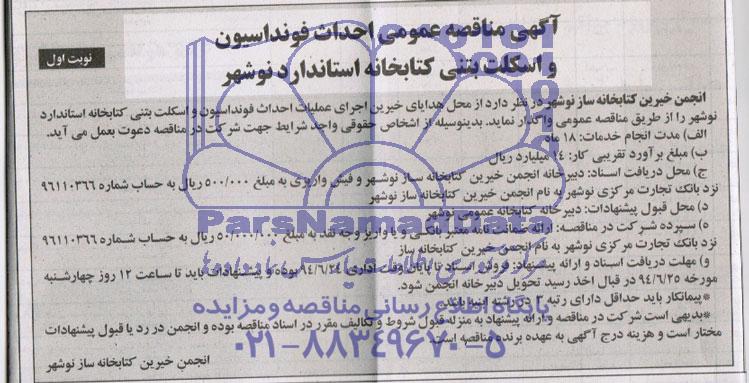 آگهی مناقصه عمومی احداث فونداسیون
و اسکلت بتنی کتابخانه استاندارد نوشهر
نوبت اول
انجمن خیرین کتابخانه ساز نوشهر در نظر دارد از محل هدایای خیرین اجرای عملیات احداث فونداسیون و اسکلت بتنی کتابخانه استاندارد
نوشهر را از طریق مناقصه عمومی واگذار نماید. بدینوسیله از اشخاص حقوقی واجد شرایط جهت شرکت در مناقصه دعوت بعمل می آید.
الف) مدت انجام خدمات: ۱۸ ماه
ب) مبلغ برآورد تقریبی کار: ۱۴ میلیارد ریال
ج) محل دریافت اسناد: دبیرخانه انجمن خیرین کتابخانه ساز نوشهر و فیش واریزی به مبلغ ۵۰۰/۰۰۰ ریال به حساب شماره ۹۶۱۱۰۳۶۶
نزد بانک تجارت مرکزی نوشهر به نام انجمن خیرین کتابخانه ساز نوشهر
د) محل قبول پیشنهادات: دبیرخانه کتابخانه عمومی نوشهر
ه) سپرده شرکت در مناقصه: ارائه ضمانت نامه معتبر بانکی و یا واریز وجه نقد به مبلغ ۵۰/۰۰۰/۰۰۰ ریال به حساب شماره ۹۶۱۱۰۳۶۶
نزد بانک تجارت مرکزی نوشهر به نام انجمن خیرین کتابخانه ساز
و) مهلت دریافت اسناد و ارائه پیشنهاد: فروش اسناد تا پایان وقت اداری ۹۴/۶/۲۴ بوده و پیشنهادات باید تا ساعت ۱۲ روز چهارشنبه
مورخه ۹۴/۶/۲۵ در قبال اخذ رسید تحویل دبیرخانه انجمن شود.
*پیمانکار باید حداقل دارای رتبه ۲ در رشته ابنیه باشد.
*بدیهی است شرکت در مناقصه و ارائه پیشنهاد به منزله قبول شروط و تکالیف مقرر در اسناد مناقصه بوده و انجمن در رد یا قبول پیشنهادات
مختار است و هزینه درج آگهی به عهده برنده مناقصه است.
انجمن خیرین کتابخانه ساز نوشهر
ParsNamadData
پایگاه اطلاع رسانی مناقصه و مزایده
۰۲۱-۸۸۳۴۹۶۷۰-۵